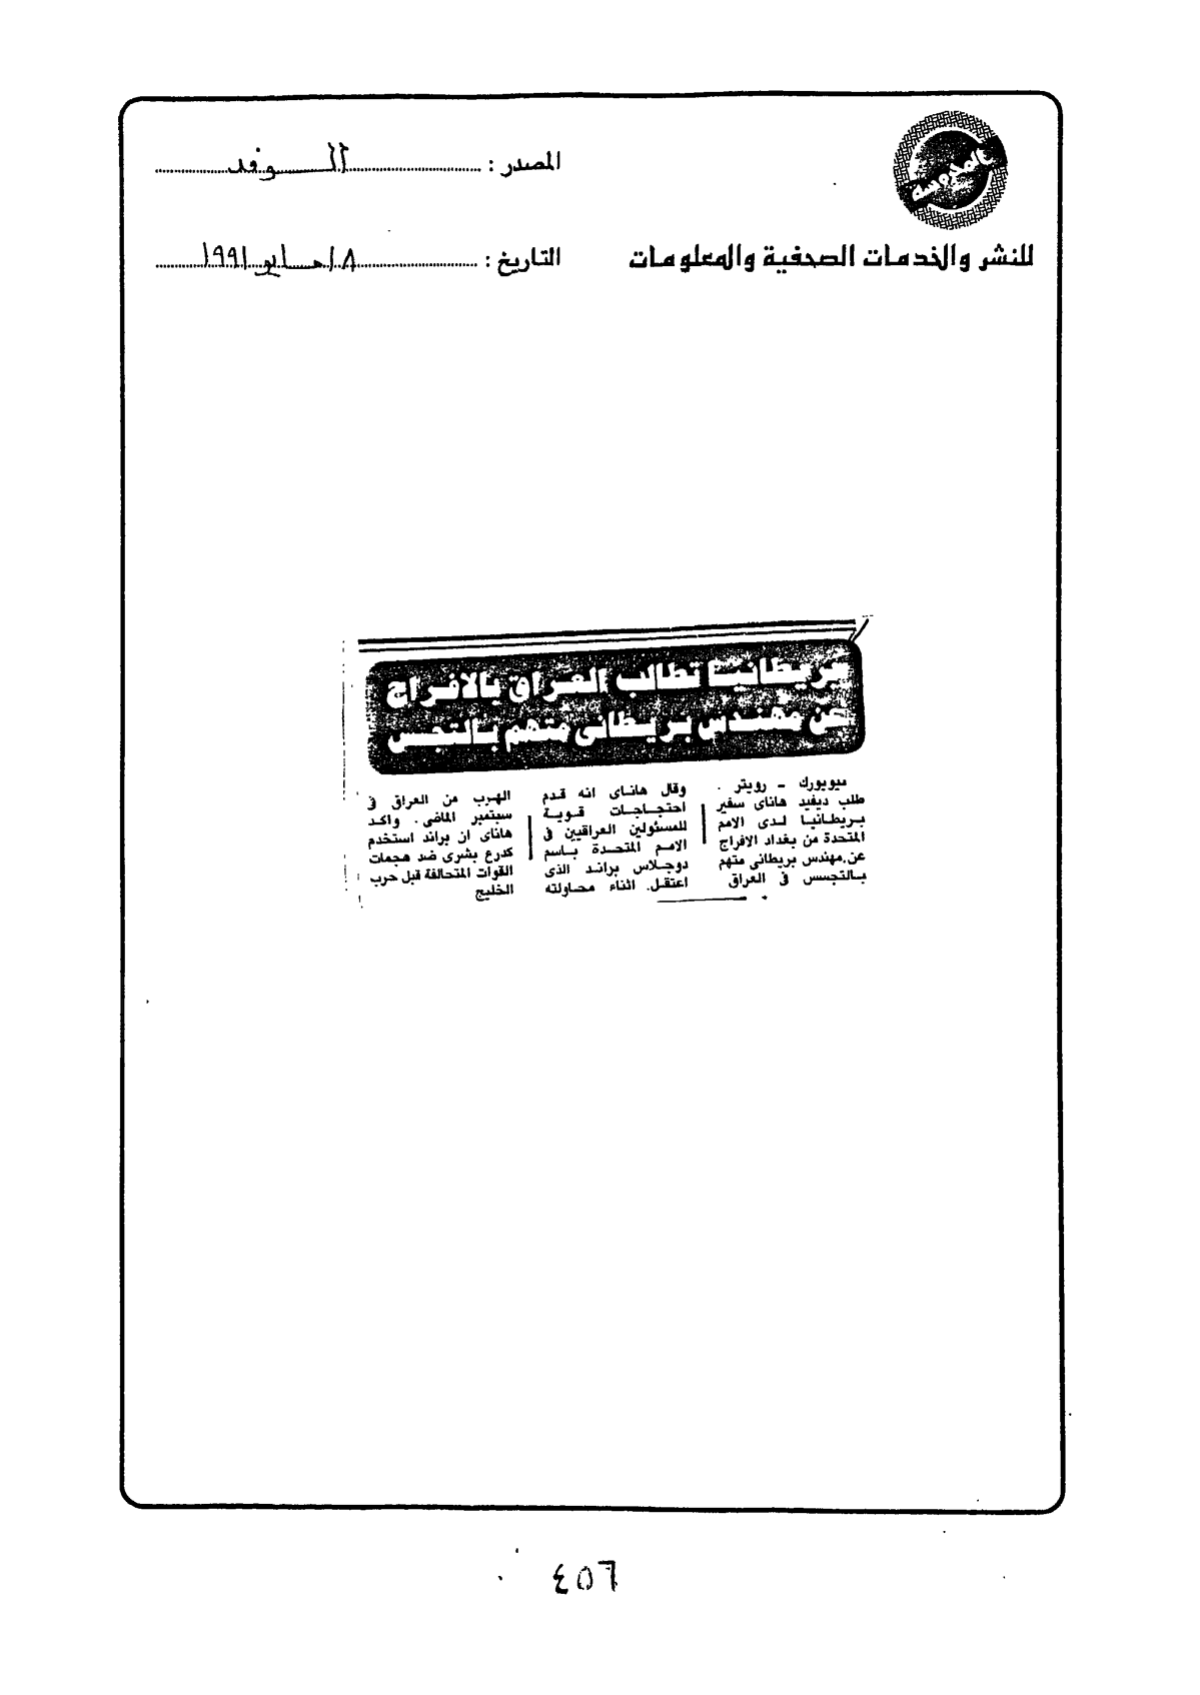 المصدر : الوفد
للنشر والخدمات الصحفية والمعلومات
التاريخ : ٨ / مايو / ١٩٩١
بريطانيا تطالب العراق بالافراج
عن مهندس بريطانى متهم بالتجسس
نيويورك - رويتر .
طلب ديفيد هاناى سفير
بريطانيا لدى الامم
المتحدة من بغداد الافراج
عن مهندس بريطانى متهم
بالتجسس فى العراق
وقال هاناى انه قدم
احتجاجات قوية
للمسئولين العراقيين فى
الامم المتحدة باسم
دوجلاس براند الذى
اعتقل. اثناء محاولته
الهرب من العراق فى
سبتمبر الماضى . واكد
هاناى ان براند استخدم
كدرع بشرى ضد هجمات
القوات المتحالفة قبل حرب
الخليج